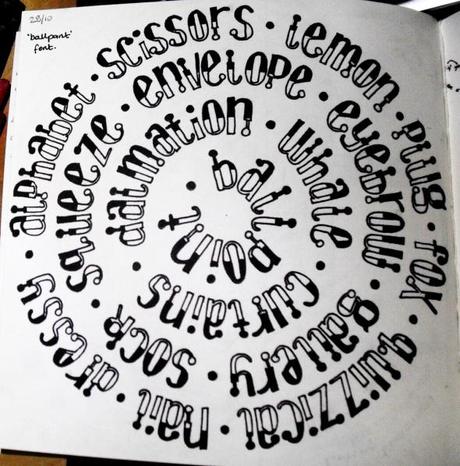 28/10
'ballpoint'
font.
alphabet · scissors · lemon · plug · fox · quizzical · nail · dressy ·
squeeze · envelope · eyebrow · gallery · sock ·
dalmation · whale · curtains ·
· ball point